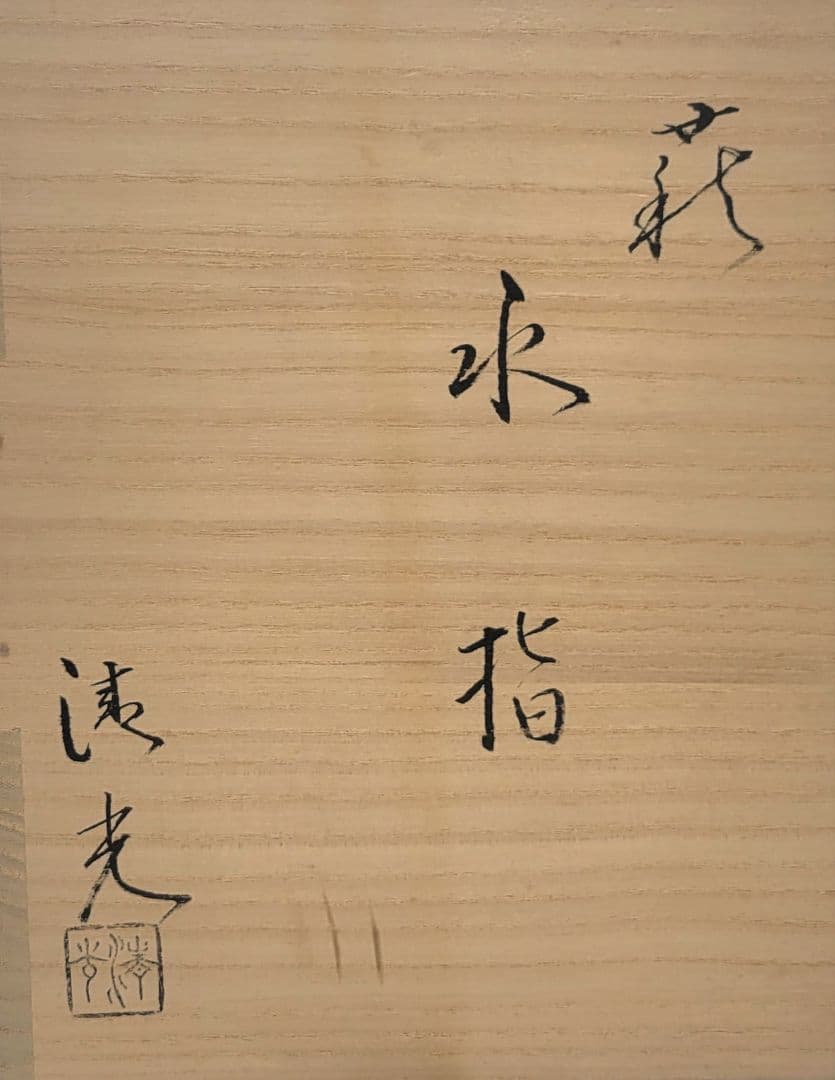 萩
水指
清光